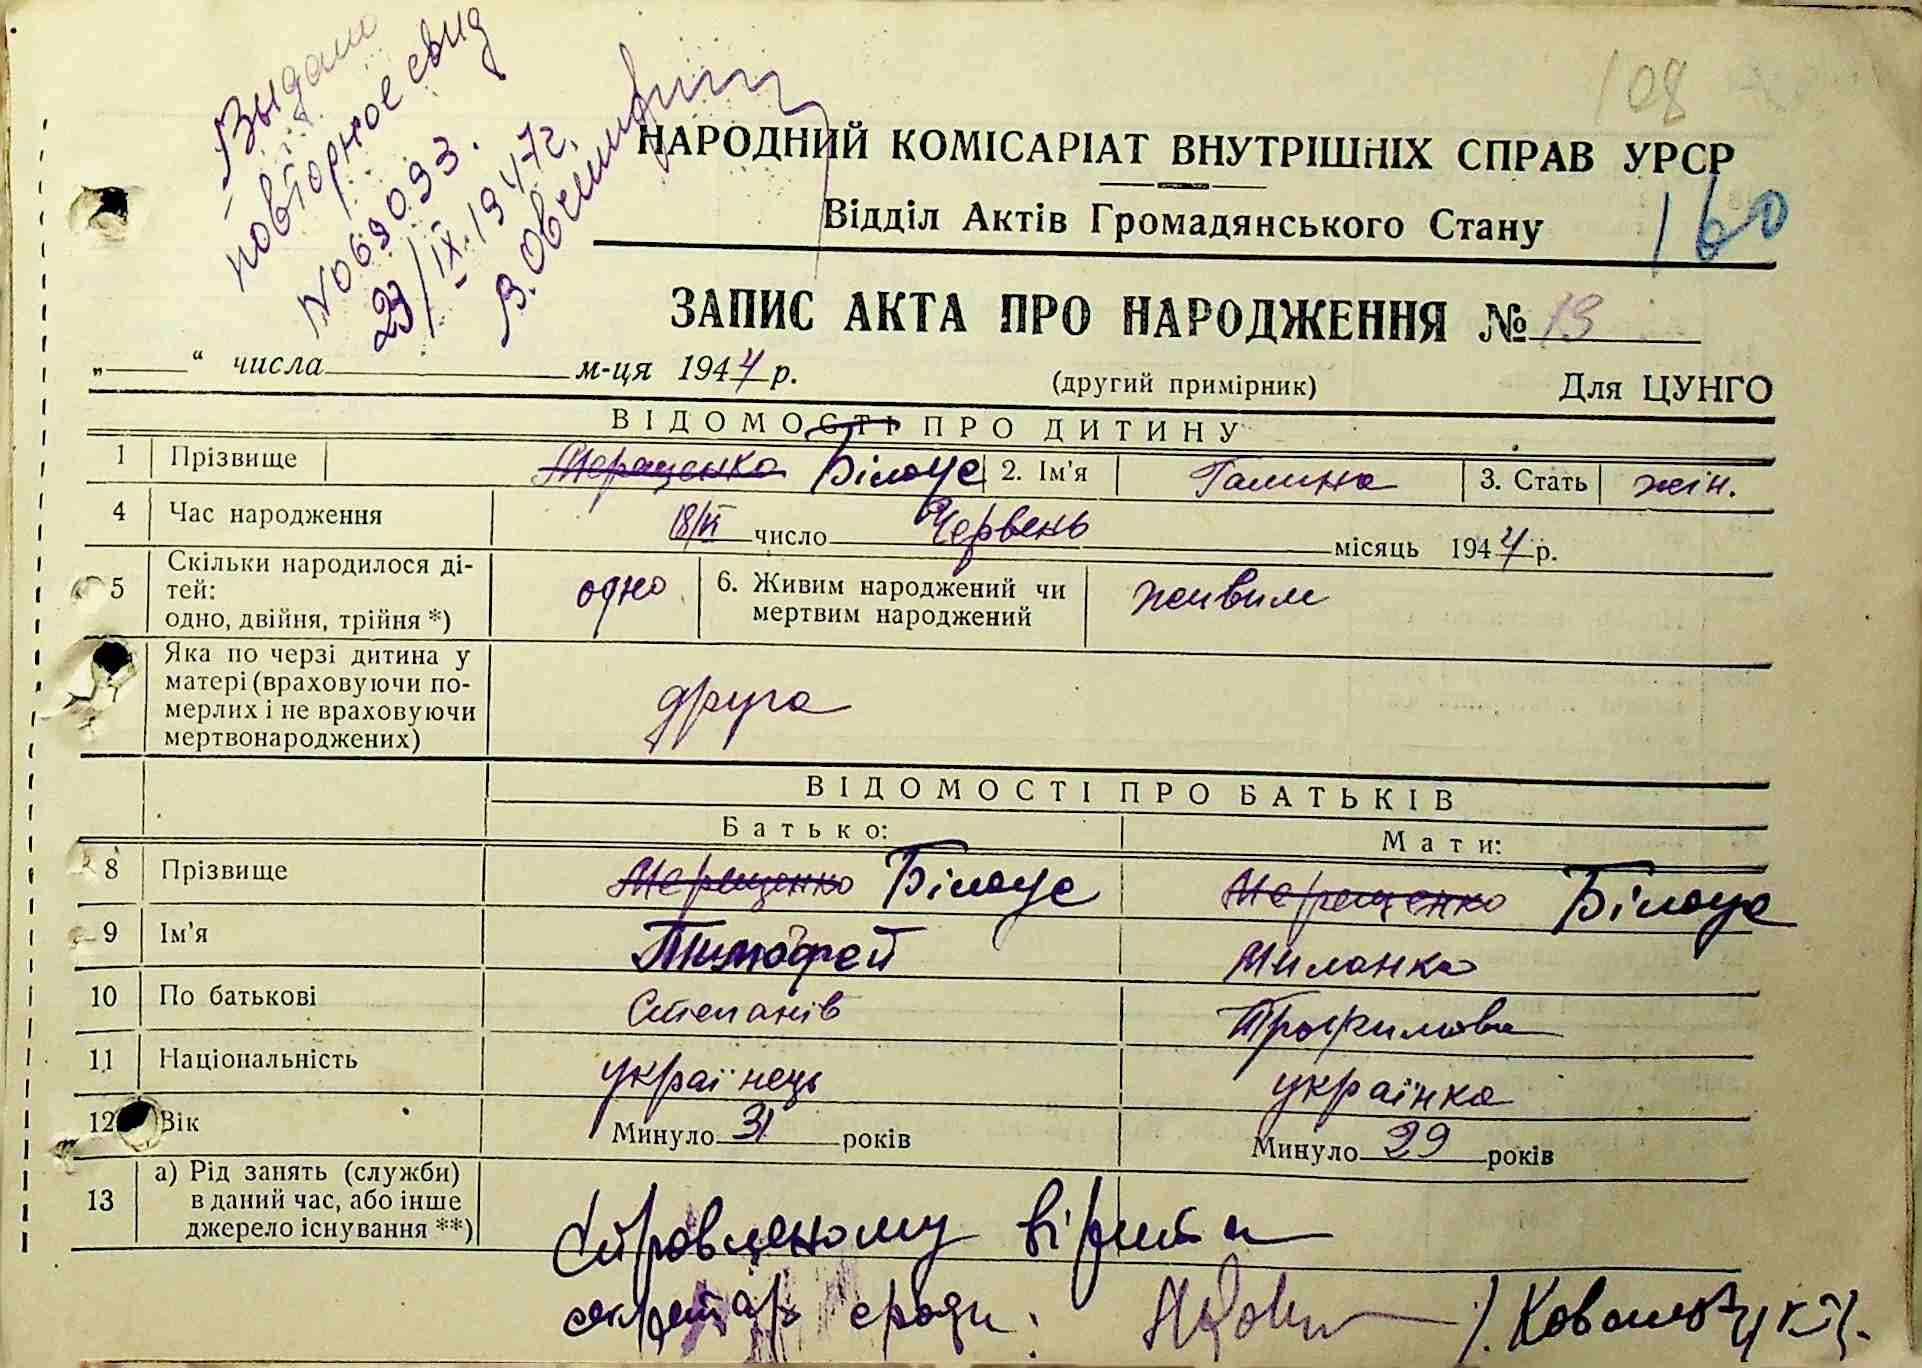 Выдано
повторное свид
№069093.
23/IX.1947г.
108
НАРОДНИЙ КОМІСАРІАТ ВНУТРІШНІХ СПРАВ УРСР
Відділ Актів Громадянського Стану
160
ЗАПИС АКТА ПРО НАРОДЖЕННЯ № 13
„ “ числа м-ця 1944 р. (другий примірник) Для ЦУНГО
ВІДОМОСТІ ПРО ДИТИНУ
1 Прізвище Мерещенко Білоус 2. Ім'я Галина 3. Стать жін.
4 Час народження 18/VI число Червень місяць 1944 р.
5 Скільки народилося ді-
тей:
одно, двійня, трійня *) одно 6. Живим народжений чи
мертвим народжений живим
Яка по черзі дитина у
матері (враховуючи по-
мерлих і не враховуючи
мертвонароджених) друга
ВІДОМОСТІ ПРО БАТЬКІВ
Батько: Мати:
8 Прізвище Мерещенко Білоус Мерещенко Білоус
9 Ім'я Тимофей Миланка
10 По батькові Степанів Трофимова
11 Національність українець українка
12 Вік Минуло 31 років Минуло 29 років
13 а) Рід занять (служби)
в даний час, або інше
джерело існування **)
Справленому вірити
секретар с/ради: